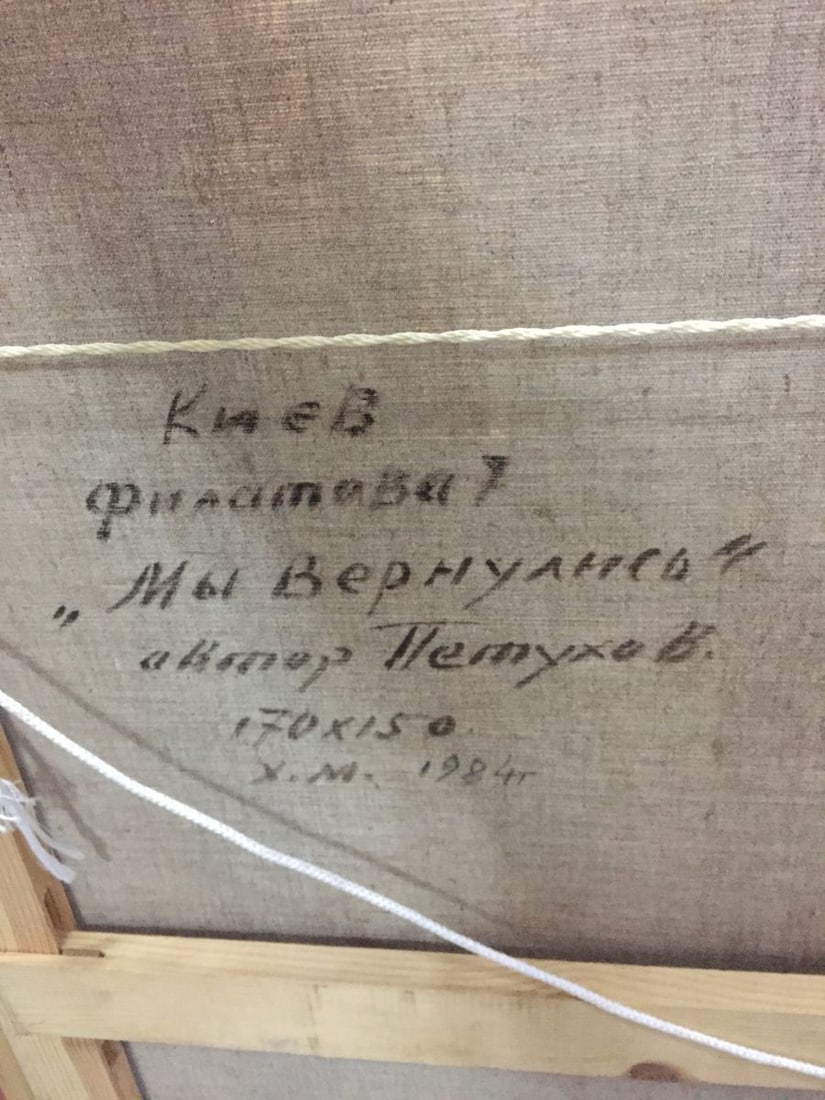 Киев
Филатова 7
„Мы вернулись“
автор Петухов.
170х150.
х.м. 1984г